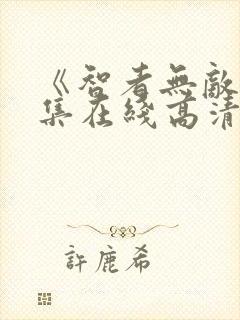 《智者無敵
集在綫高清
許鹿希